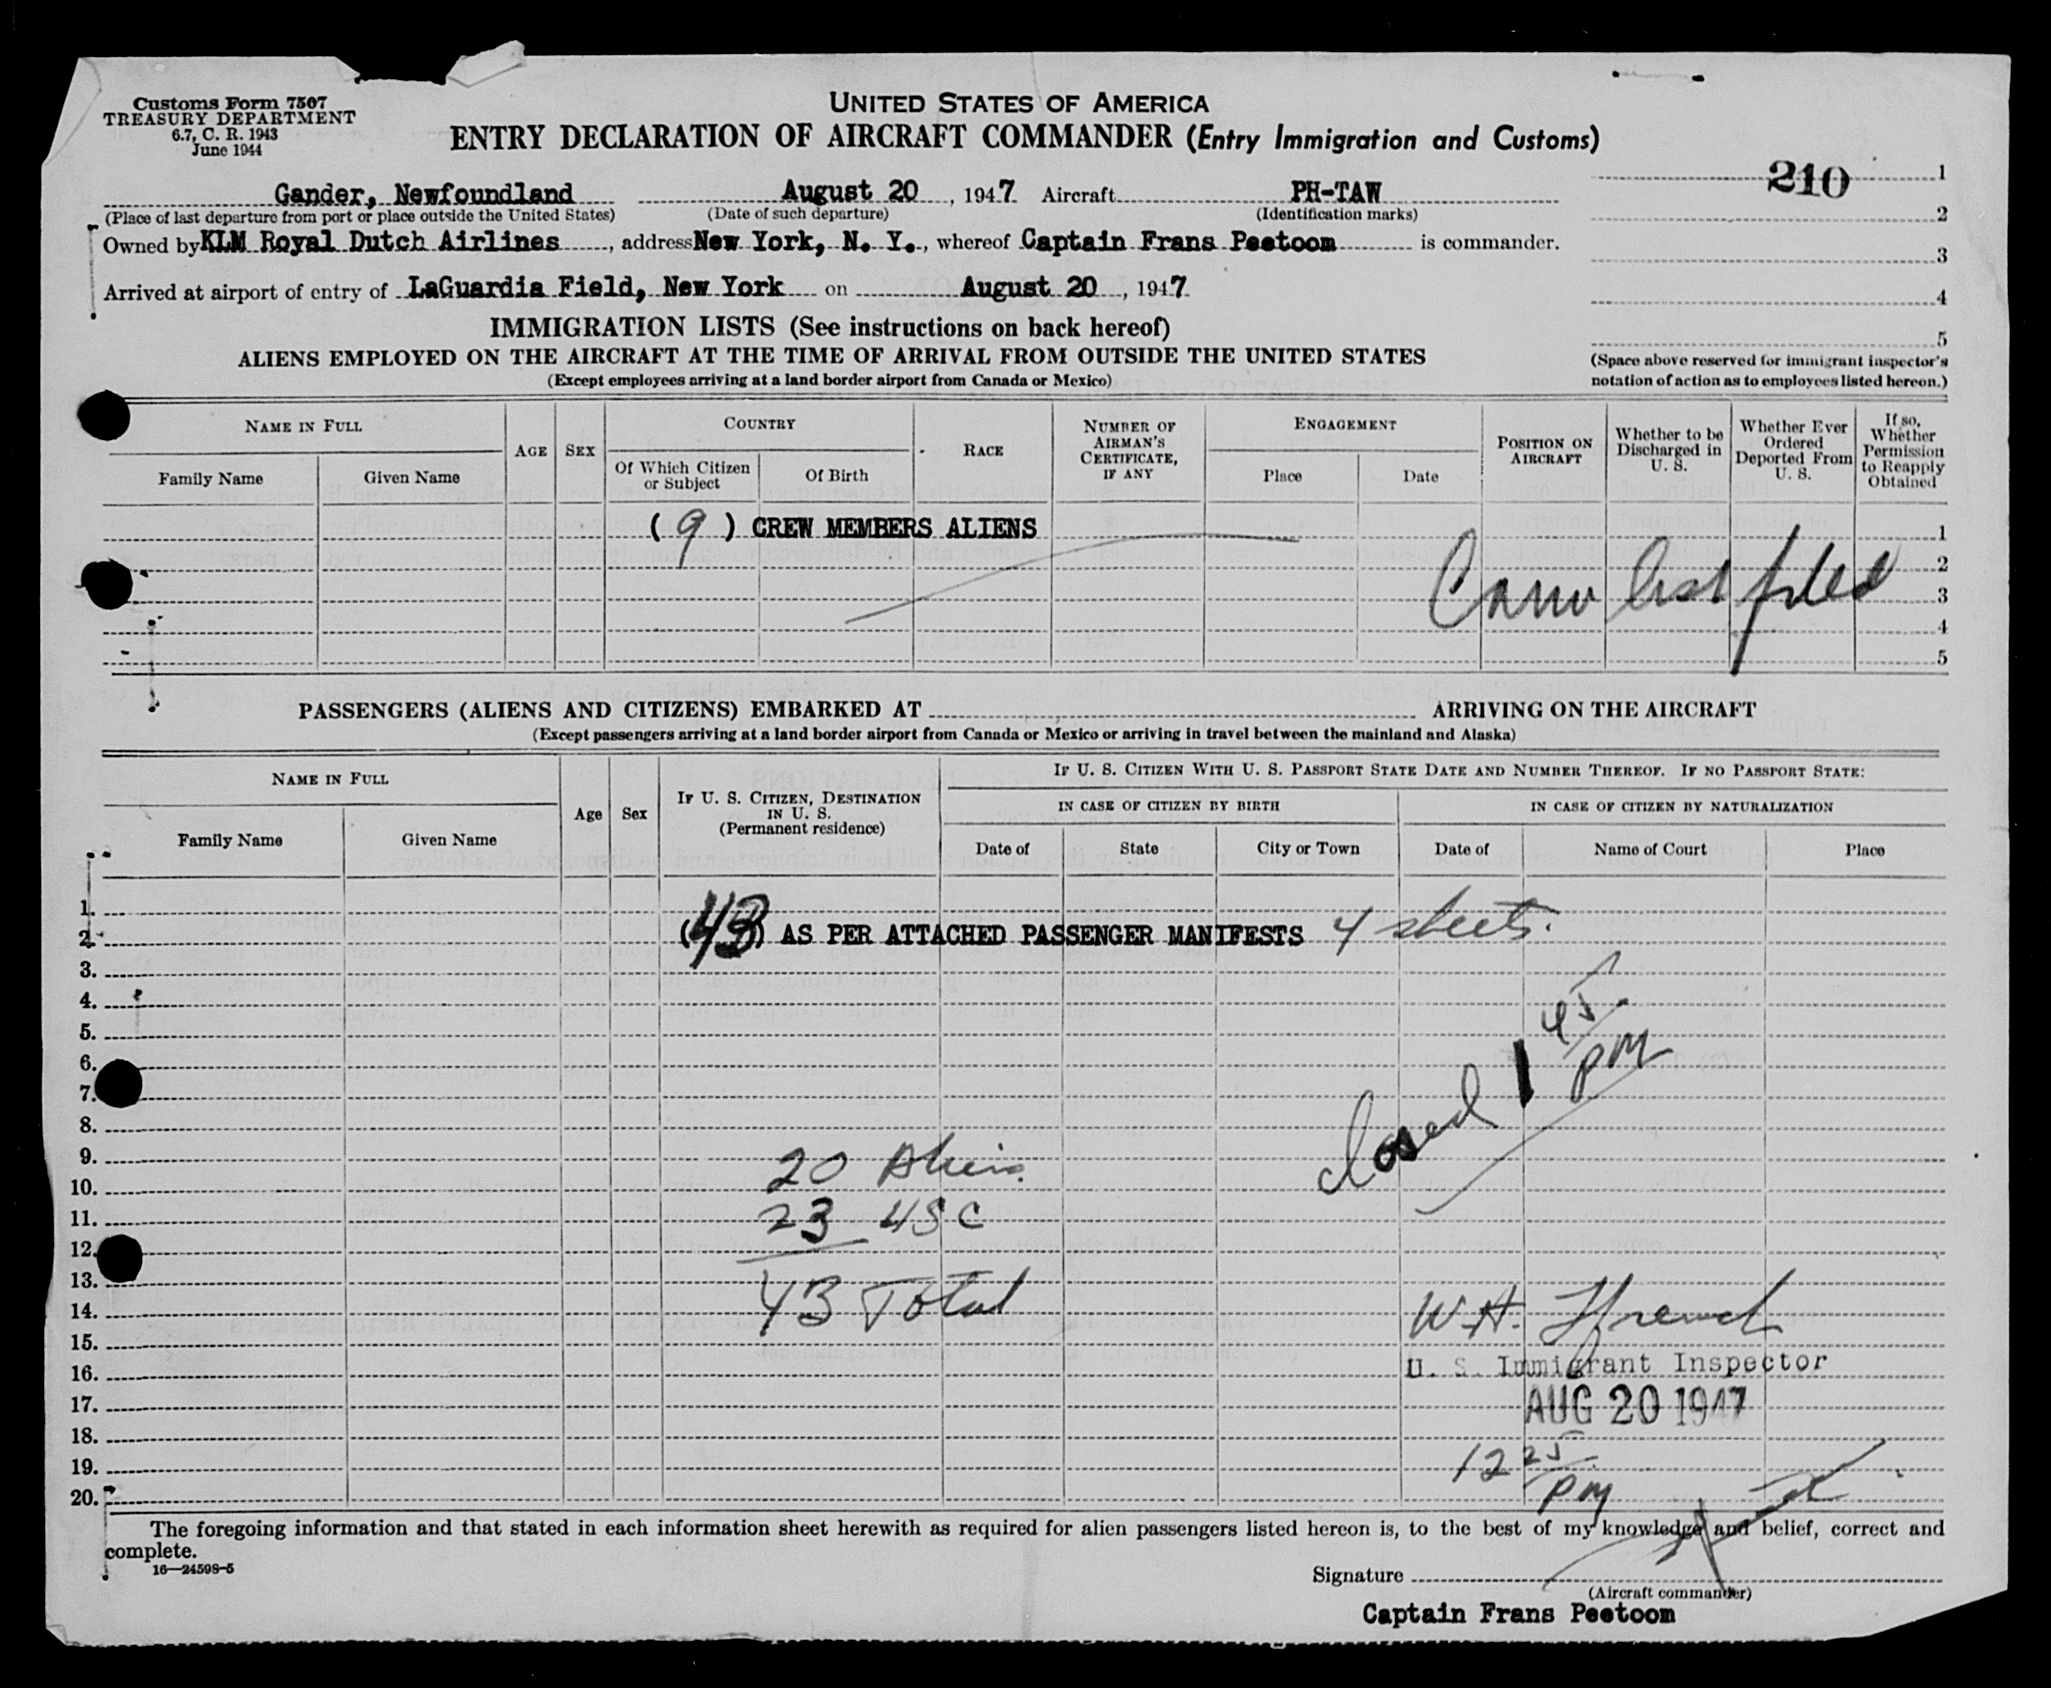 Customs Form 7507
TREASURY DEPARTMENT
6.7, C. R. 1943
June 1944
UNITED STATES OF AMERICA
ENTRY DECLARATION OF AIRCRAFT COMMANDER (Entry Immigration and Customs)
210
Gander, Newfoundland August 20, 1947 Aircraft PH-TAW
(Place of last departure from port or place outside the United States) (Date of such departure) (Identification marks)
Owned by KLM Royal Dutch Airlines, address New York, N. Y., whereof Captain Frans Peetoom is commander.
Arrived at airport of entry of LaGuardia Field, New York on August 20, 1947
1
2
3
4
5
(Space above reserved for immigrant inspector's
notation of action as to employees listed hereon.)
IMMIGRATION LISTS (See instructions on back hereof)
ALIENS EMPLOYED ON THE AIRCRAFT AT THE TIME OF ARRIVAL FROM OUTSIDE THE UNITED STATES
(Except employees arriving at a land border airport from Canada or Mexico)
NAME IN FULL
Family Name
Given Name
AGE
SEX
COUNTRY
Of Which Citizen
or Subject
Of Birth
RACE
NUMBER OF
AIRMAN'S
CERTIFICATE,
IF ANY
ENGAGEMENT
Place
Date
POSITION ON
AIRCRAFT
Whether to be
Discharged in
U. S.
Whether Ever
Ordered
Deported From
U. S.
If so,
Whether
Permission
to Reapply
Obtained
(9) CREW MEMBERS ALIENS
list filed
1
2
3
4
5
PASSENGERS (ALIENS AND CITIZENS) EMBARKED AT ARRIVING ON THE AIRCRAFT
(Except passengers arriving at a land border airport from Canada or Mexico or arriving in travel between the mainland and Alaska)
NAME IN FULL
Family Name
Given Name
Age
Sex
IF U. S. CITIZEN, DESTINATION
IN U. S.
(Permanent residence)
IF U. S. CITIZEN WITH U. S. PASSPORT STATE DATE AND NUMBER THEREOF. IF NO PASSPORT STATE:
IN CASE OF CITIZEN BY BIRTH
IN CASE OF CITIZEN BY NATURALIZATION
Date of
State
City or Town
Date of
Name of Court
Place
1.
2.
(43) AS PER ATTACHED PASSENGER MANIFESTS 4 sheets.
3.
4.
5.
6.
7.
8.
closed 1 45 PM
9.
20 Aliens
10.
11.
23 USC
12.
13.
43 Total
14.
W. H. French
15.
16.
U. S. Immigrant Inspector
17.
AUG 20 1947
18.
19.
12 25 PM
20.
The foregoing information and that stated in each information sheet herewith as required for alien passengers listed hereon is, to the best of my knowledge and belief, correct and
complete.
16—24598-5
Signature
(Aircraft commander)
Captain Frans Peetoom